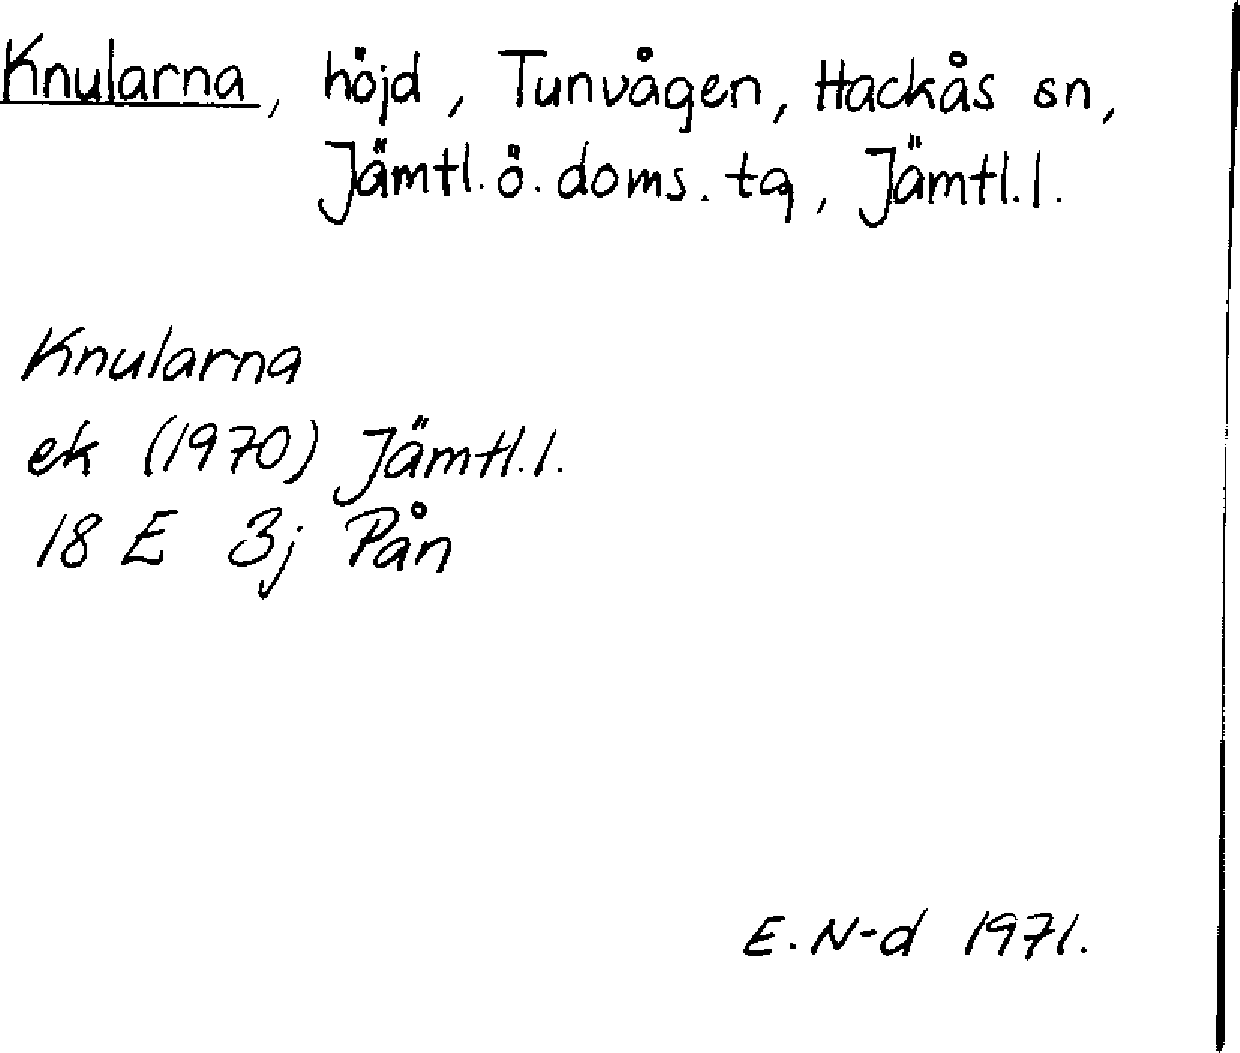 Knularna, höjd, Tunvågen, Hackås sn,
Jämtl. ö. doms. tg, Jämtl. l.
Knularna
ek (1970) Jämtl. l.
18 E 3j Pån
E. N-d 1971.